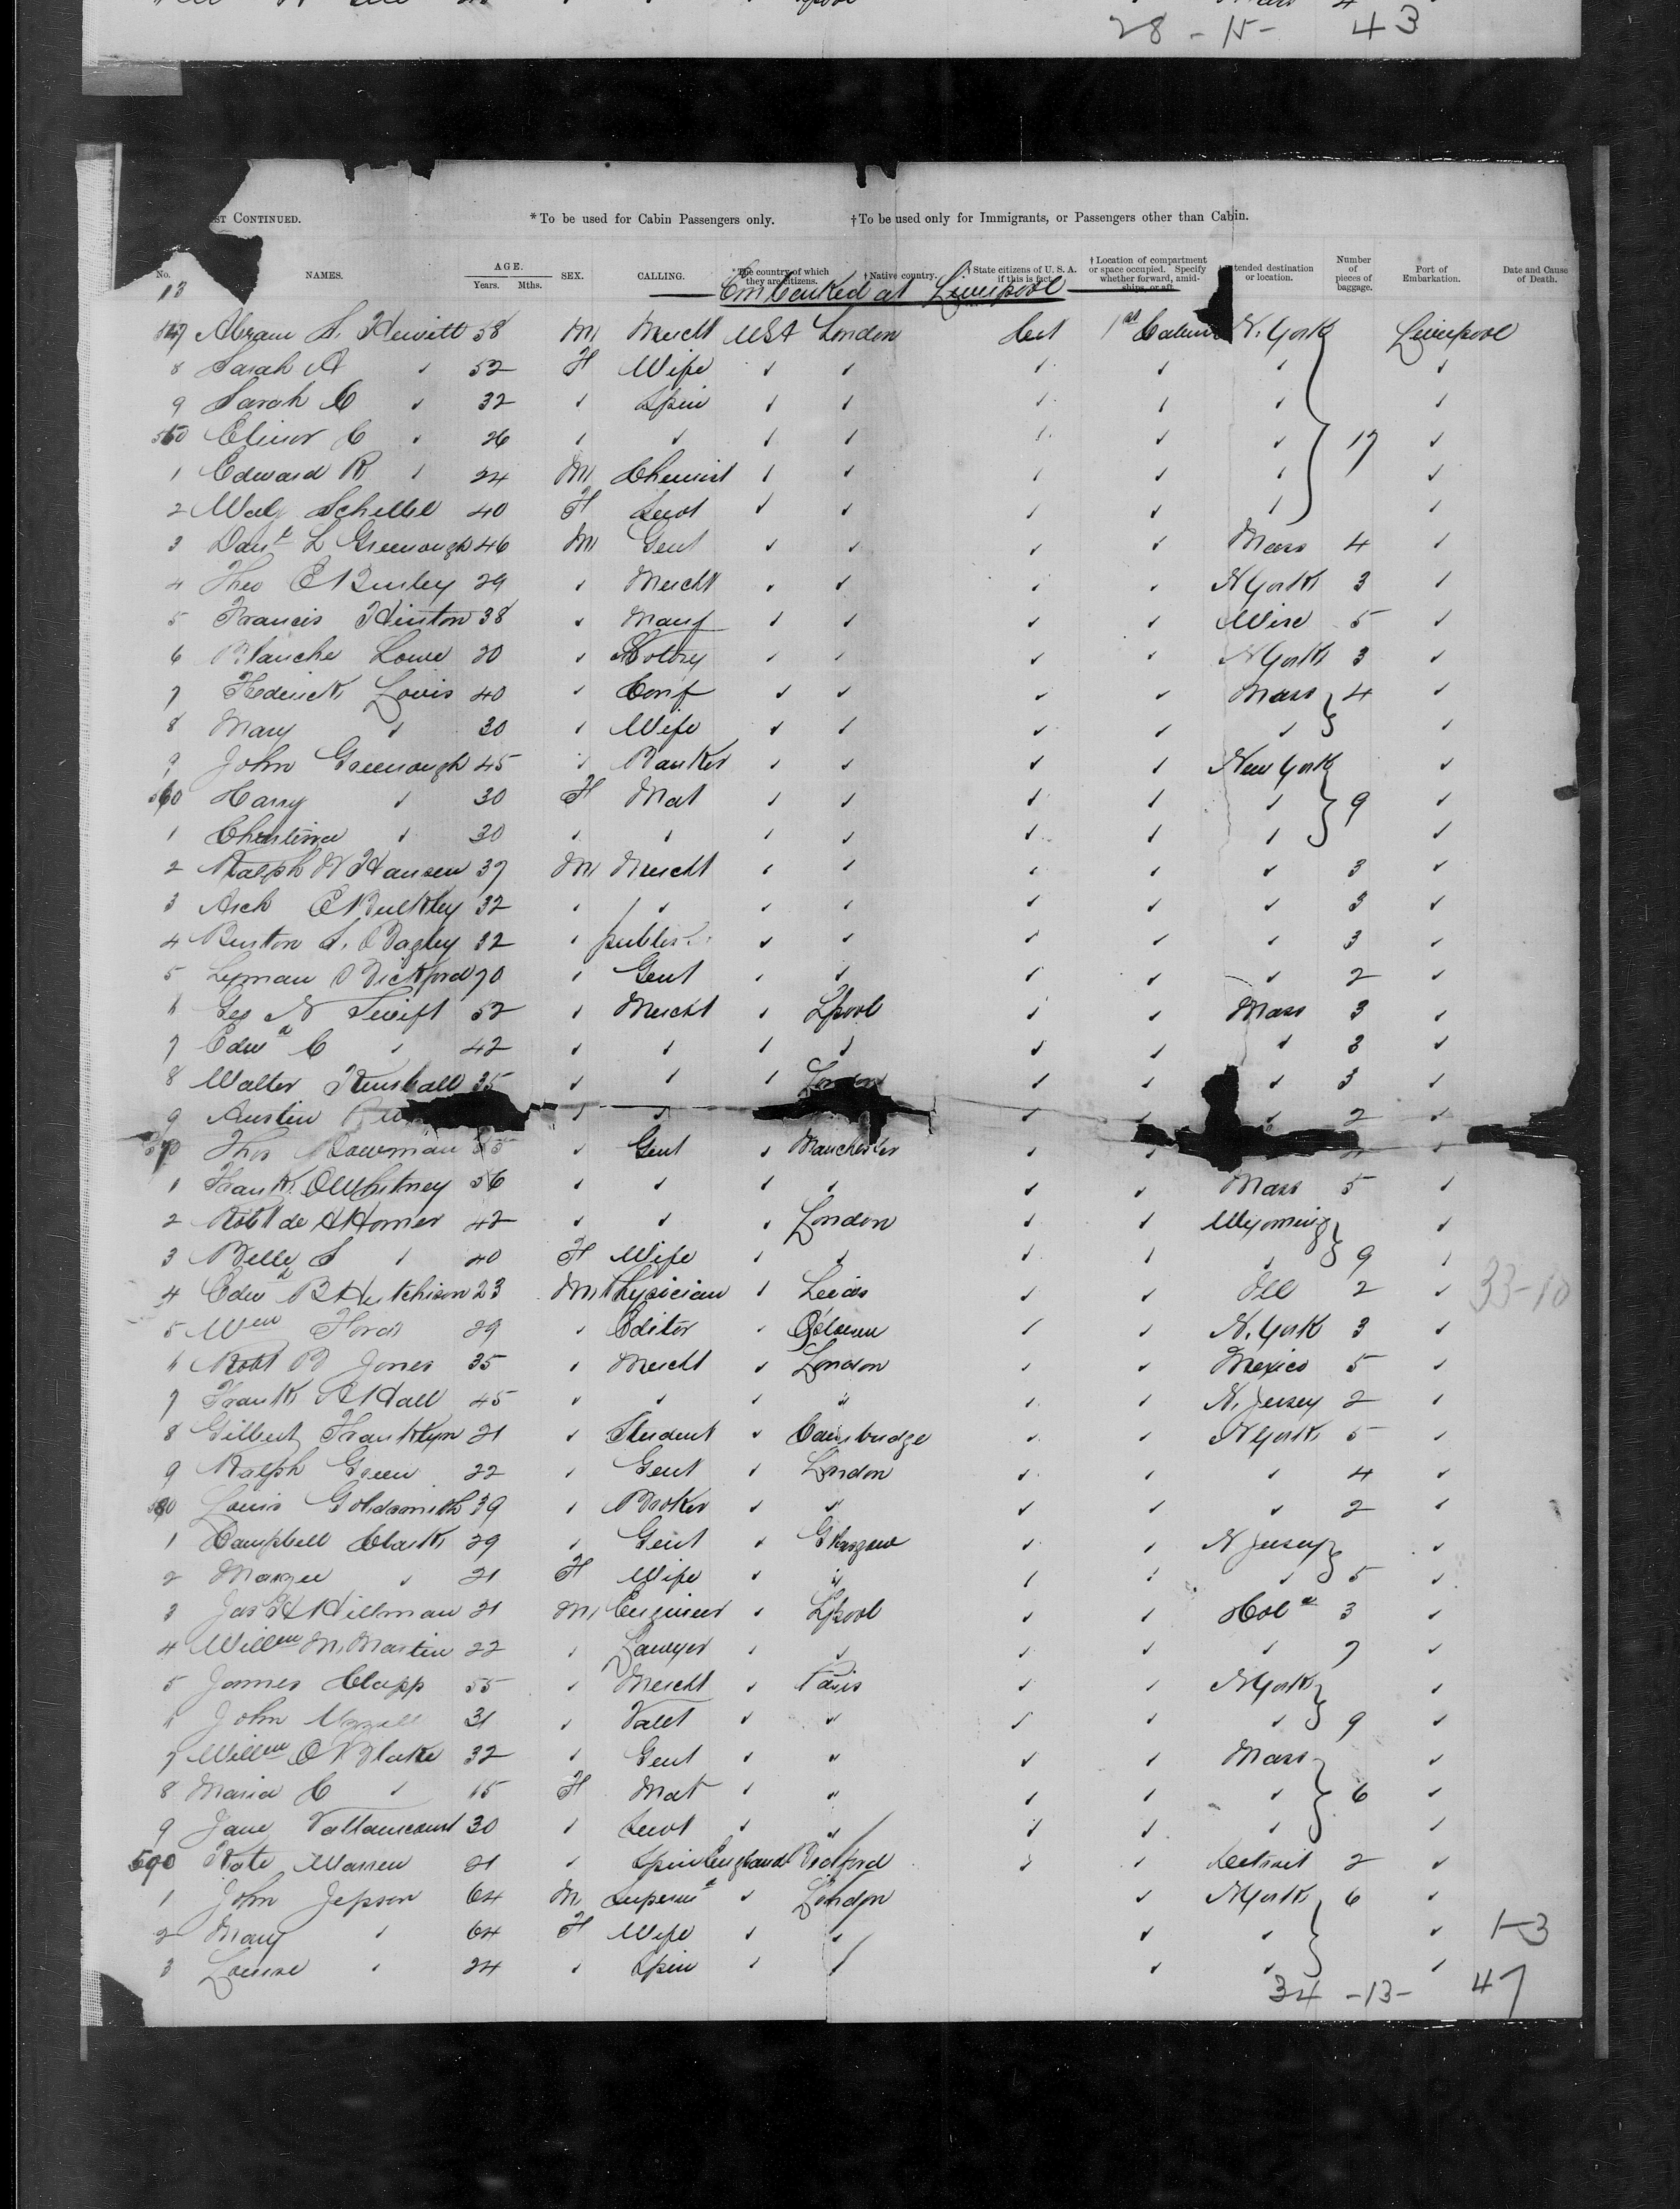 28 - 15 - 43
ST CONTINUED. *To be used for Cabin Passengers only. †To be used only for Immigrants, or Passengers other than Cabin.
No. NAMES. AGE. Years. Mths. SEX. CALLING. *The country of which they are citizens. †Native country. †State citizens of U. S. A. if this is fact. †Location of compartment or space occupied. Specify whether forward, amidships, or aft. tended destination or location. Number of pieces of baggage. Port of Embarkation. Date and Cause of Death.
13 Embarked at Liverpool
Abram S. Hewitt 58 M Mercht USA London 1st Cabin N. York Liverpool
8 Sarah A ✓ 52 F Wife ✓ ✓ ✓ ✓ ✓ ✓
9 Sarah C ✓ 32 ✓ Spin ✓ ✓ ✓ ✓ ✓ ✓
550 Elinor C ✓ 26 ✓ ✓ ✓ ✓ ✓ ✓ ✓ 17 ✓
1 Edward R ✓ 24 M Chemist ✓ ✓ ✓ ✓ ✓ ✓
2 40 F Servt ✓ ✓ ✓ ✓ ✓ ✓
3 Danl L Greenough 46 M Gent ✓ ✓ ✓ ✓ Mass 4 ✓
4 Theo E 29 ✓ Mercht ✓ ✓ ✓ ✓ N York 3 ✓
5 Francis Hinton 38 ✓ Manf ✓ ✓ ✓ ✓ Wisc 5 ✓
6 Blanche Lowe 20 ✓ ✓ ✓ ✓ ✓ N York 3 ✓
7 Frederick Louis 40 ✓ Conf ✓ ✓ ✓ ✓ Mass 4 ✓
8 Mary ✓ 30 ✓ Wife ✓ ✓ ✓ ✓ ✓ ✓
9 John Greenough 45 ✓ Banker ✓ ✓ ✓ ✓ New York ✓
560 Harry ✓ 30 F Mat ✓ ✓ ✓ ✓ ✓ 9 ✓
1 Christina ✓ 30 ✓ ✓ ✓ ✓ ✓ ✓ ✓ ✓
2 Ralph W Hansen 37 M Mercht ✓ ✓ ✓ ✓ ✓ 3 ✓
3 Arch E Bulkley 32 ✓ ✓ ✓ ✓ ✓ ✓ ✓ 3 ✓
4 Burton S. Bagley 32 ✓ ✓ ✓ ✓ ✓ ✓ 3 ✓
5 Lyman Bickford 70 ✓ Gent ✓ ✓ ✓ ✓ ✓ 2 ✓
6 Geo N Swift 52 ✓ Mercht ✓ Lpool ✓ ✓ Mass 3 ✓
7 Edwd C ✓ 42 ✓ ✓ ✓ ✓ ✓ ✓ ✓ 3 ✓
8 Walter Kimball 35 ✓ ✓ ✓ London ✓ ✓ ✓ 3 ✓
9 Austin ✓ ✓ ✓ ✓ ✓ 2 ✓
570 Thos Bowman 35 ✓ Gent ✓ Manchester ✓ ✓ ✓
1 Frank O Whitney 36 ✓ ✓ ✓ ✓ ✓ ✓ Mass 5 ✓
2 Robt de H Homer 42 ✓ ✓ ✓ London ✓ ✓ Wyoming ✓
3 Belle S ✓ 40 F Wife ✓ ✓ ✓ ✓ ✓ 9 ✓
4 Edwd B Hutchison 23 M Physician ✓ Leeds ✓ ✓ Ill 2 ✓ 33-10
5 Wm Ford 29 ✓ Editor ✓ ✓ ✓ N. York 3 ✓
6 Robt B Jones 35 ✓ Mercht ✓ London ✓ ✓ Mexico 5 ✓
7 Frank A Hall 45 ✓ ✓ ✓ " ✓ ✓ N. Jersey 2 ✓
8 Gilbert Franklyn 21 ✓ Student ✓ Cambridge ✓ ✓ N York 5 ✓
9 Ralph Green 22 ✓ Gent ✓ London ✓ ✓ ✓ 4 ✓
580 Louis Goldsmith 39 ✓ Broker ✓ " ✓ ✓ ✓ 2 ✓
1 Campbell Clark 29 ✓ Gent ✓ Glasgow ✓ ✓ N Jersey ✓
2 ✓ 21 F Wife ✓ " ✓ ✓ ✓ 5 ✓
3 Jas H Hillman 21 M Engineer ✓ Lpool ✓ ✓ 3 ✓
4 Willm M. Martin 22 ✓ Lawyer ✓ ✓ ✓ ✓ ✓ 7 ✓
5 James Clapp 55 ✓ Mercht ✓ Paris ✓ ✓ N York ✓
6 John 31 ✓ Valet ✓ " ✓ ✓ ✓ 9 ✓
7 Willm O Blake 32 ✓ Gent ✓ " ✓ ✓ Mass ✓
8 Maria C ✓ 15 F Mat ✓ " ✓ ✓ ✓ 6 ✓
9 Jane Vallancourt 30 ✓ Servt ✓ " ✓ ✓ ✓ ✓
590 Kate Warren 21 ✓ Spin England Bedford ✓ ✓ Detroit 2 ✓
1 John Jepson 64 M ✓ London ✓ N York 6 ✓
2 Mary ✓ 64 F Wife ✓ ✓ ✓ ✓ ✓ 1-3
3 Louise ✓ 24 ✓ Spin ✓ ✓ ✓ ✓ ✓
34 -13- 47